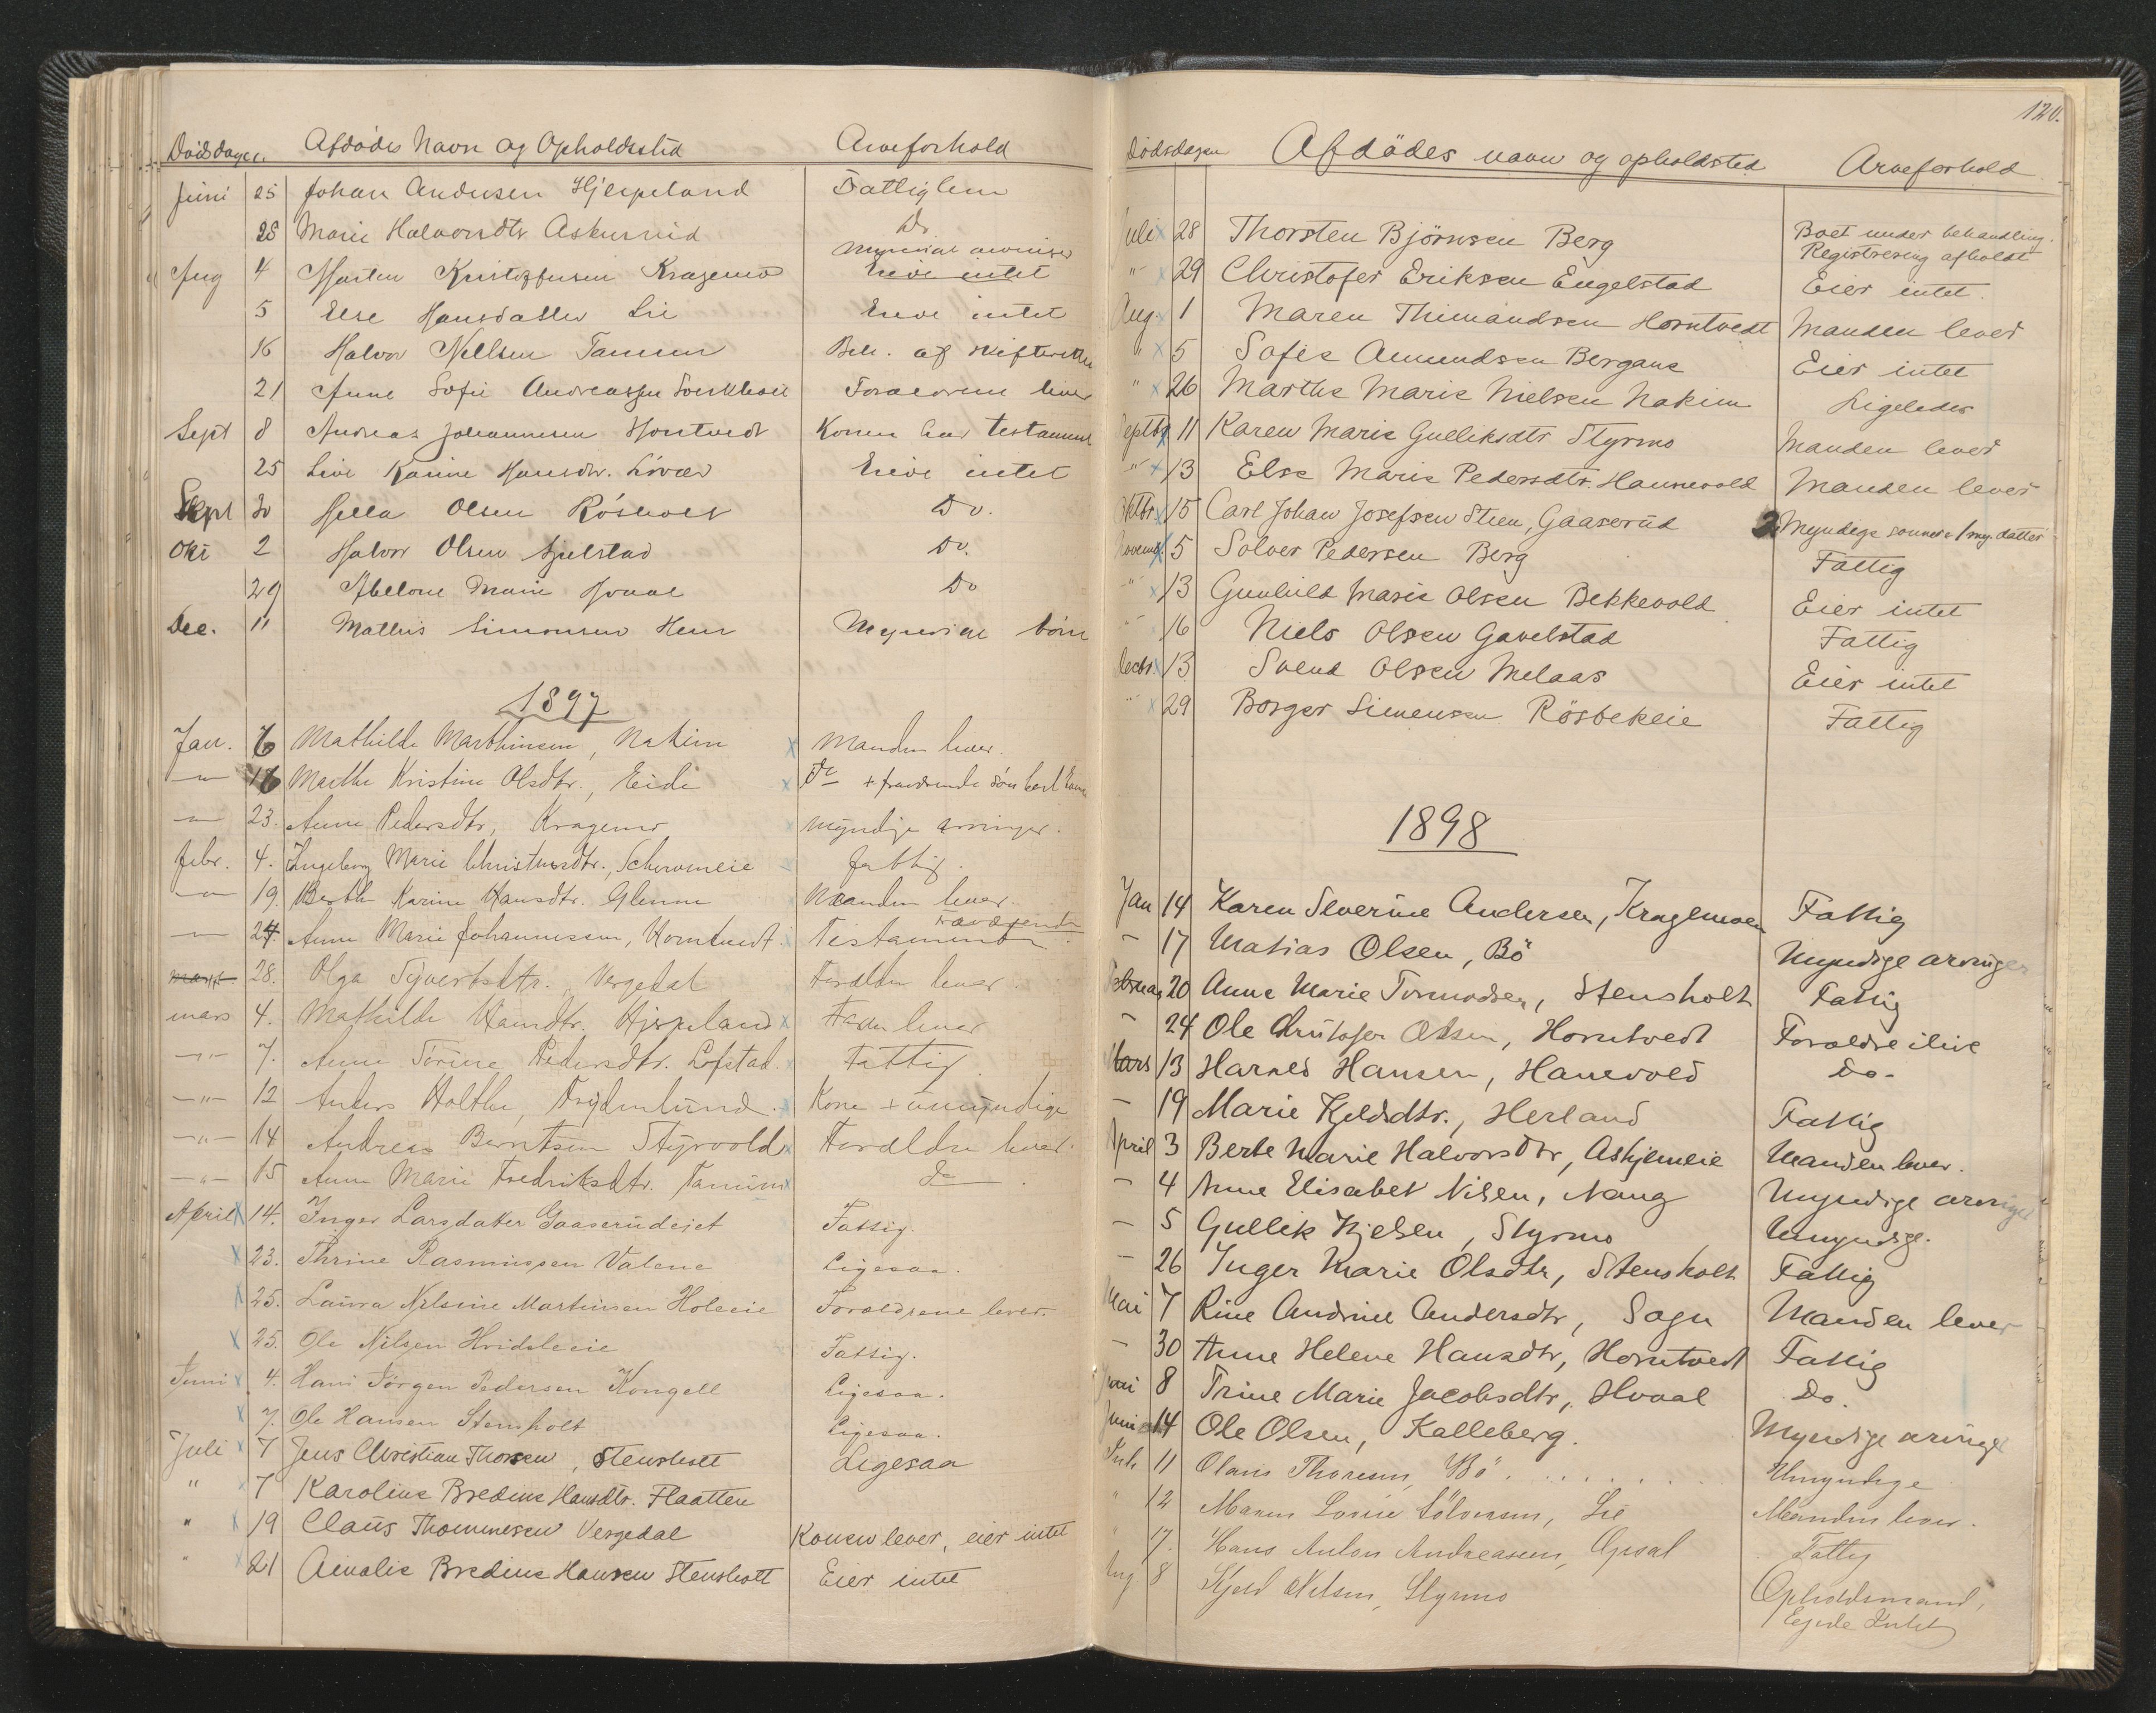 Dødsdagen. Afdødes Navn og Opholdssted Arveforhold
Juni 25 Johan Andersen Hjerpeland Fattiglem
28 Marie Halvorsdtr Do
Myndige arvinger
Aug 4 Morten Kristoffersen Kragemo Eiede intet
5 Else Hansdatter Lie Eiede intet
16 Halvor Nellsen Tanum Beh. af skifteretten
21 Anne Sofie Andreassen Forældrene lever
Sept 8 Andreas Johannesen Horntvedt Konen har testament
25 Live Karine Hansdtr. Løvaas Eiede intet
Sept 30 Hella Olsen Røsholt Do.
Okt 2 Halvor Olsen Gjelstad Do.
29 Abelone Marie Hvaal Do
Dec. 11 Mathis Simonsen Hem Myndige børn
1897
Jan. 6 Mathilde Marthinsen, Nakim x Manden lever.
" 16 Marthe Kristine Olsdtr., Eide x Do + fraværende søn
" 23. Anne Pedersdtr, Kragemo Myndige arvinger.
Febr. 4. Ingeborg Marie Christensdtr., fattig.
" 19. Berthe Karine Hansdtr. Glenne Manden lever.
fraværende
" 24. Anne Marie Johannessen, Horntvedt. Testament
marts 28. Olga Syvertsdtr. Vergedal Forældre lever.
mars 4. Mathilde Hansdtr. Hjerpeland x Fader lever
-"- 7. Anne Sørine Pedersdtr. Lofstad. x Fattig.
-"- 12 Anders Holthe, Frydenlund. Kone + umyndige
-"- 14 Andreas Berntsen Styrvold x Forældre lever.
-"- 15 Anne Marie Fredriksdtr. Tanum x Do.
April x 14. Inger Larsdatter Gaaserudejet Fattig.
x 23. Thrine Rasmussen Valene Ligesaa.
x 25. Laura Nilsine Martinsen Holeeie Forældrene lever.
x 25. Ole Nilsen Fattig.
Juni x 4. Hans Jörgen Pedersen Kongell Ligesaa.
x 7. Ole Hansen Stensholt Ligesaa.
Juli x 7 Jens Christian Thorsen, Stensholt Ligesaa
" x 7 Karoline Bredine Hansdtr. Flaatten
" x 19 Claus Thommesen Vergedal Konen lever, eier intet
" x 21 Amalie Bredine Hansen Stensholt Eier intet
120.
Dödsdagen Afdödes navn og opholdsted Arveforhold
Juli x 28 Thorsten Björnsen Berg Boet under behandling.
Registrering afholdt
" x 29 Christofer Eriksen Engelstad Eier intet.
Aug. x 1 Maren Thimandsen Horntvedt Manden lever
" x 5 Sofie Amundsen Bergane Eier intet
" x 26 Marthe Marie Nielsen Nakim Ligeledes
Septbr 11 Karen Marie Gulliksdtr Styrmo Manden lever
" x 13 Else Marie Pedersdtr. Hannevold Manden lever
Oktbr x 15 Carl Johan Josefsen Steen, Gaaserud 2 Myndige sönner 1 my. datter
Novemb. x 5 Solver Pedersen Berg Fattig
" x 13 Gunhild Marie Olsen Bekkevold Eier intet
" 16 Niels Olsen Gavelstad Fattig
Decbr. x 13 Svend Olsen Melaas Eier intet
" x 29 Borger Simensen Rösbekeie Fattig
1898
Jan 14 Karen Severine Andersen, Kragemoen Fattig
– 17 Matias Olsen, Bö Myndige arvinger
Februar 20 Anne Marie Tormodsen, Stensholt Fattig
– 24 Ole Christofer Olsen, Horntvedt Forældre ilive
Mars 13 Harald Hansen, Hanevold Do.
– 19 Marie Kjeldsdtr., Herland Fattig
April 3 Berte Marie Halvorsdtr, Askjemeie Manden lever.
– 4 Anne Elisabet Nilsen, Naug Myndige arvinger
– 5 Gullik Kjelsen, Styrmo Umyndige.
– 26 Inger Marie Olsdtr, Stensholt Fattig
Mai 7 Rine Andrine Andersdtr, Sogn Manden lever
– 30 Anne Helene Hansdtr, Horntvedt Fattig
Juni 8 Trine Marie Jacobsdtr, Hvaal Do.
Juni 14 Ole Olsen, Kalleberg. Myndige arvinger
Juli 11 Olaus Thoresen, Bö . . . . . . . Umyndige
" 12 Maren Lovise Sölversen, Lie Manden lever.
" 17. Hans Anton Andreassen, Opsal Fattig
Aug 8 Kjeld Nilsen, Styrmo Opholdsmand,
Eiede Intet